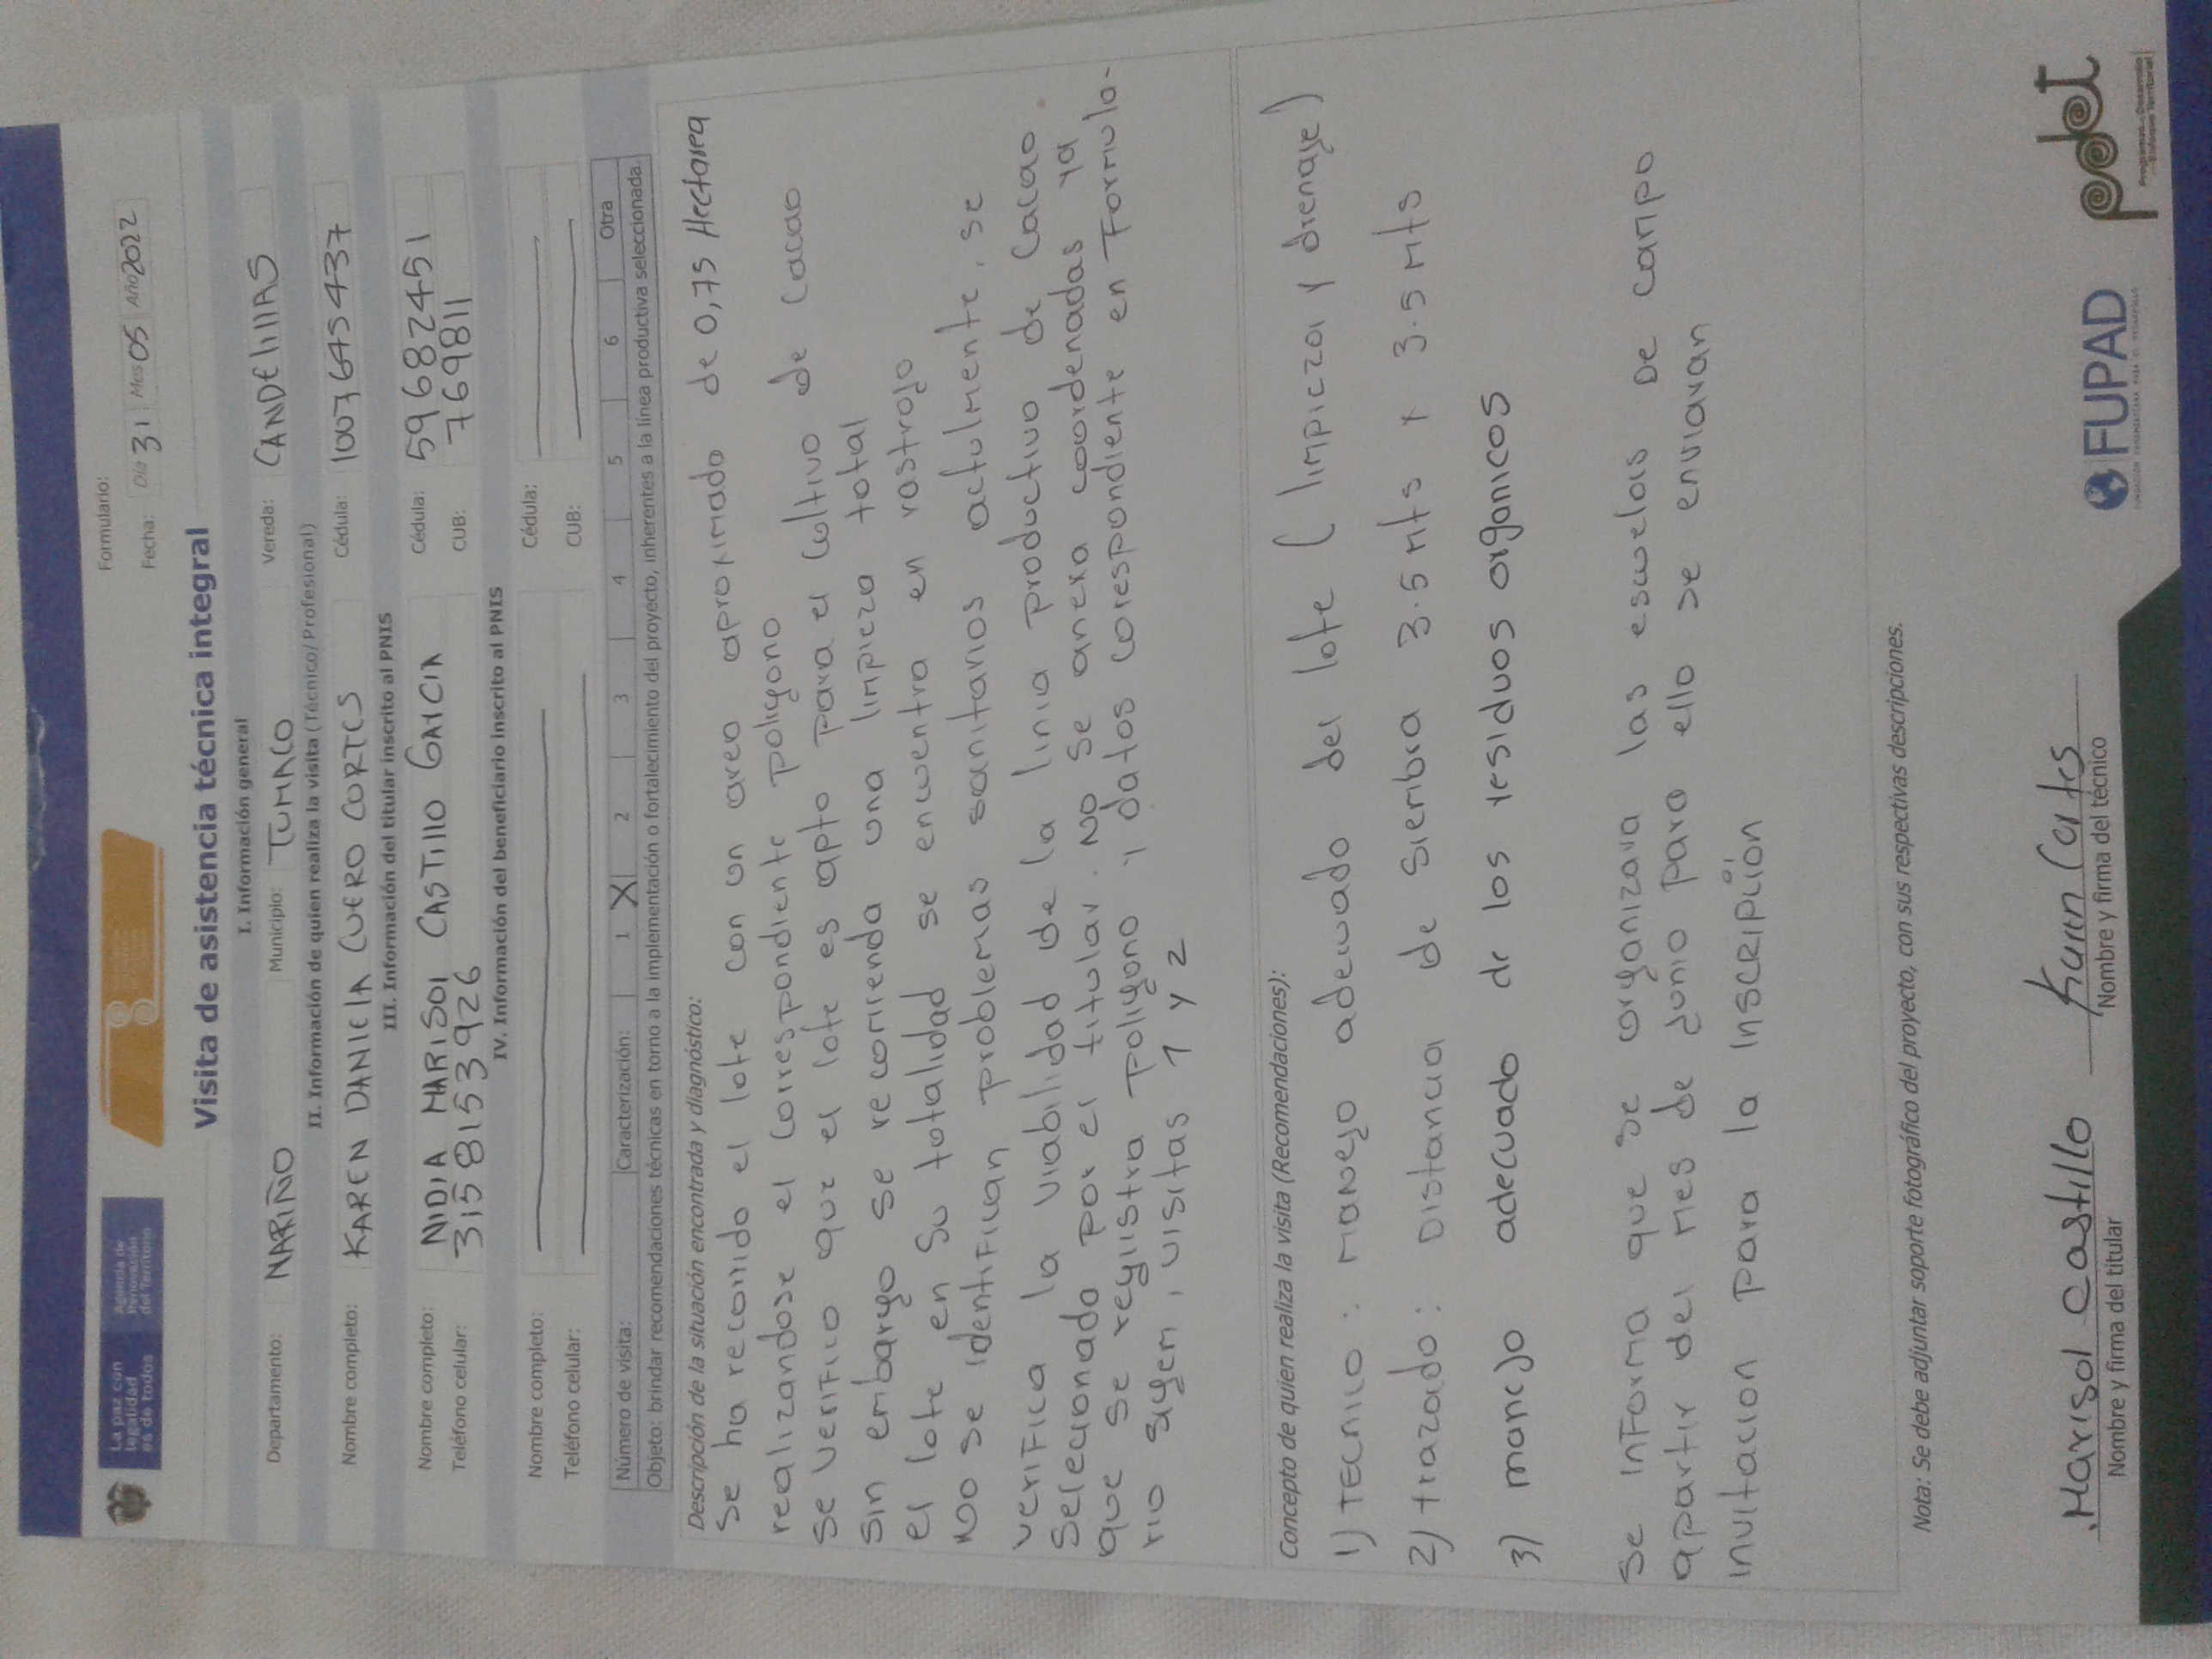 La paz con
legalidad
es de todos
Agencia de
Renovación
del Territorio
Formulario:
Fecha: Día 31 Mes 05 Año 2022
Visita de asistencia técnica integral
I. Información general
Departamento: NARIÑO Municipio: TUMACO Vereda: CANDELILLAS
II. Información de quien realiza la visita (Técnico/Profesional)
Nombre completo: KAREN DANIELA CUERO CORTES Cédula: 1007645437
III. Información del titular inscrito al PNIS
Nombre completo: NIDIA MARISOL CASTILLO GARCIA Cédula: 59682451
Teléfono celular: 3158153926 CUB: 769811
IV. Información del beneficiario inscrito al PNIS
Nombre completo: Cédula:
Teléfono celular: CUB:
Número de visita: Caracterización: 1 X 2 3 4 5 6 Otra
Objeto: brindar recomendaciones técnicas en torno a la implementación o fortalecimiento del proyecto, inherentes a la línea productiva seleccionada.
Descripción de la situación encontrada y diagnóstico:
Se ha reconido el lote con un area aproximado de 0,75 Hectarea
realizandose el correspondiente poligono
se verifico que el lote es apto para el cultivo de cacao
sin embargo se recomienda una limpieza total
el lote en su totalidad se encuentra en rastrojo
No se identifican problemas sanitarios actulmente, se
verifica la viabilidad de la linia productivo de cacao.
selecionado por el titular. No se anexa coordenadas ya
que se registra poligono y datos corespondiente en Formula-
rio sygem, visitas 1 y 2
Concepto de quien realiza la visita (Recomendaciones):
1) Tecnico: manejo adecuado del lote ( limpieza y drenaje)
2) trazado: Distancia de siembra 3.5 mts x 3.5 mts
3) manejo adecuado de los residuos organicos
Se informa que se organizara las escuelas De campo
apartir del mes de Junio para ello se enviaran
invitacion para la inscripcion
Nota: Se debe adjuntar soporte fotográfico del proyecto, con sus respectivas descripciones.
Marisol Castillo Karen Cortes
Nombre y firma del titular Nombre y firma del técnico
FUPAD
FUNDACIÓN PANAMERICANA PARA EL DESARROLLO
pdet
Programas de Desarrollo
con Enfoque Territorial